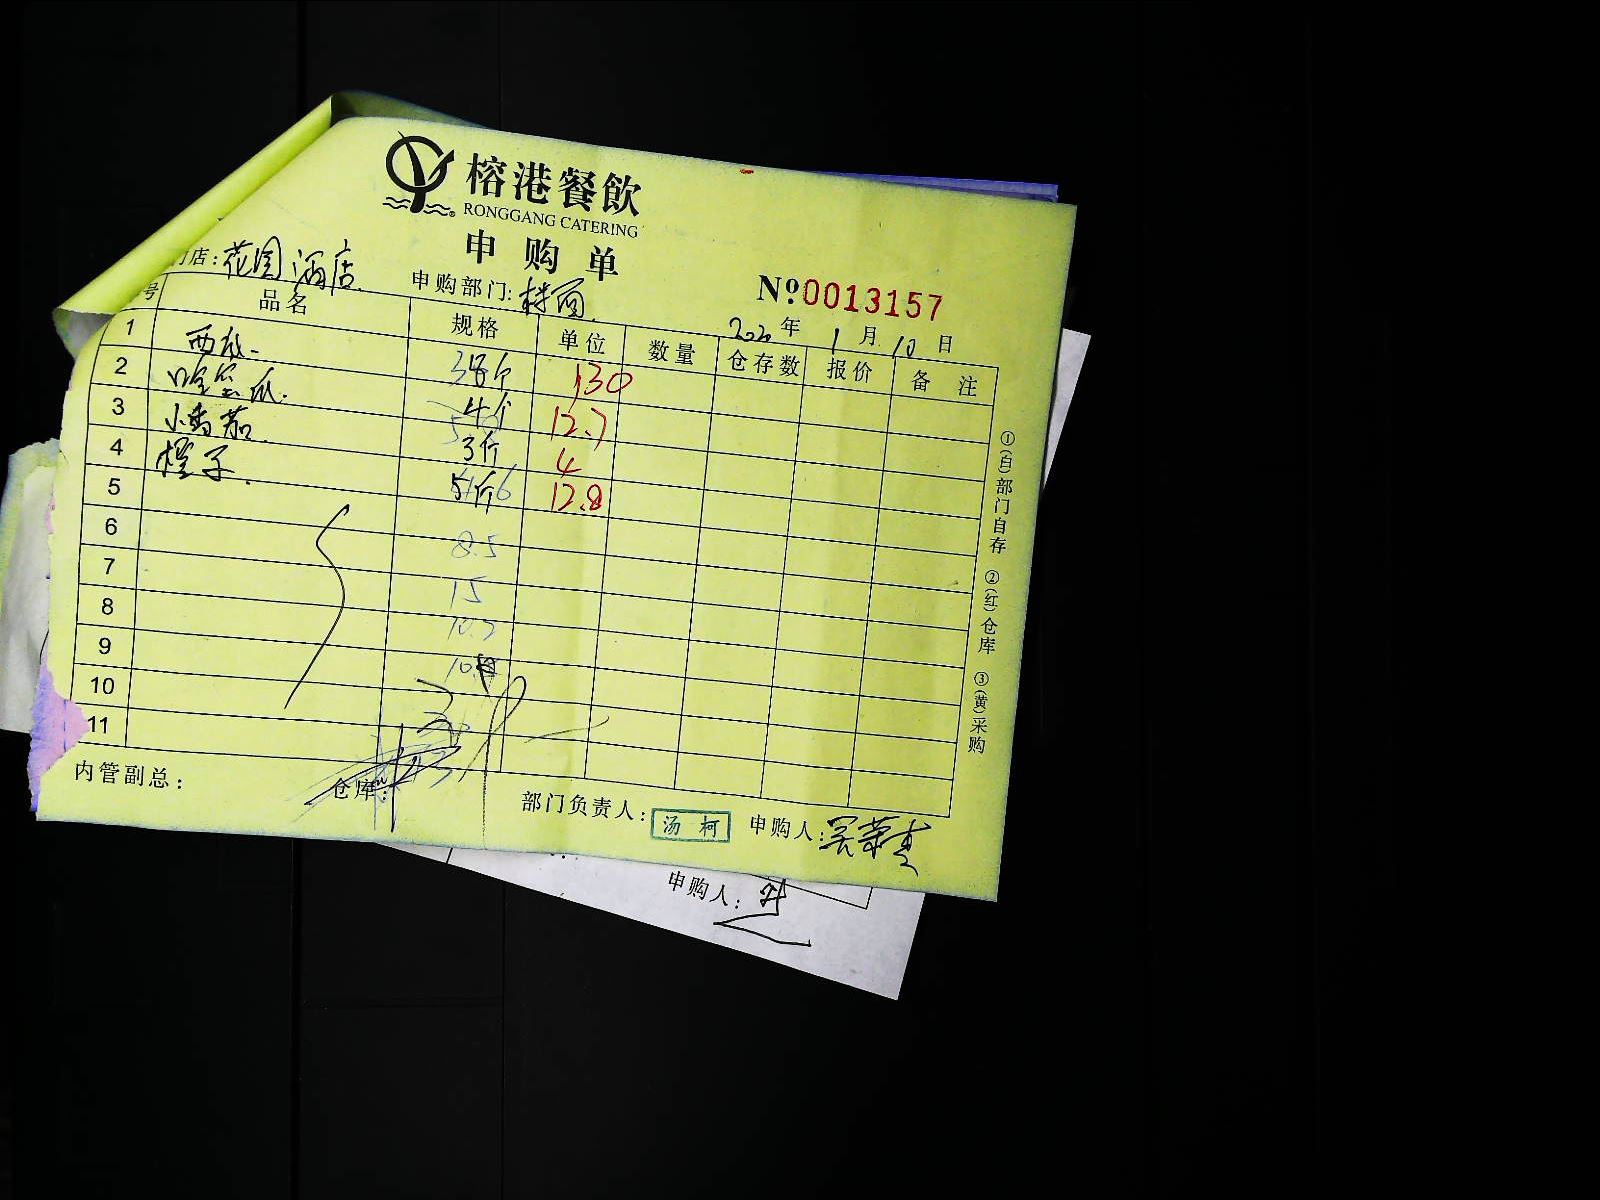 榕港餐飲
RONGGANG CATERING
申购单
门店:花园酒店 申购部门: Nº0013157
2020年1月10日
号 品名 规格 单位 数量 仓存数 报价 备注
1 西瓜 38个 130
2 哈密瓜 4个 12.7
3 小番茄 3斤 4
4 橙子 5斤 12.8
5
6 8.5
7 15
8 10.7
9
10
11
①(白)部门自存 ②(红)仓库 ③(黄)采购
内管副总: 仓库: 部门负责人:汤柯 申购人:
申购人: